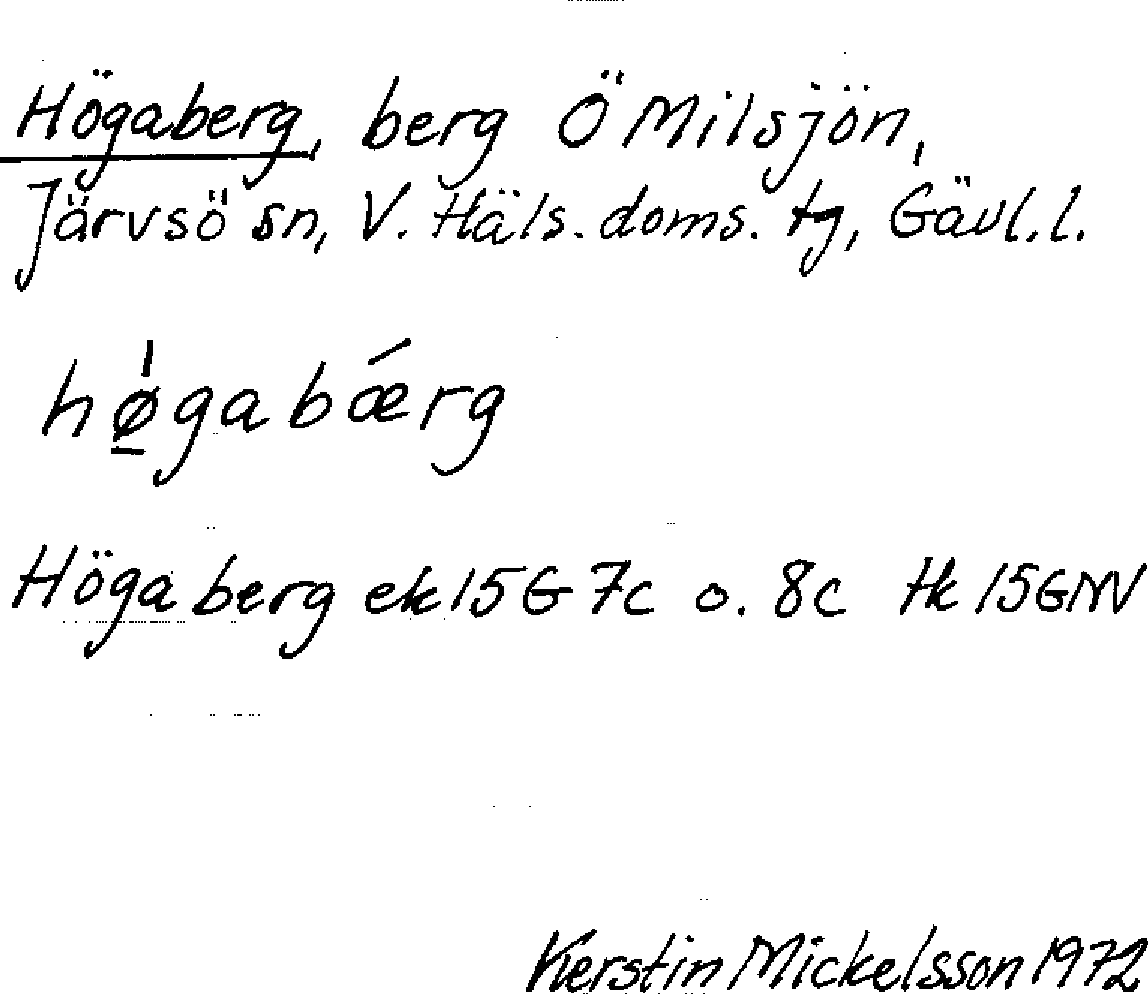 Högaberg, berg Ö Milsjön,
Järvsö sn, V. Häls. doms. tg, Gävl. l.
hø̠̍gabǽrg
Högaberg ek 15G 7c o. 8c tk 15GNV
Kerstin Mickelsson 1972